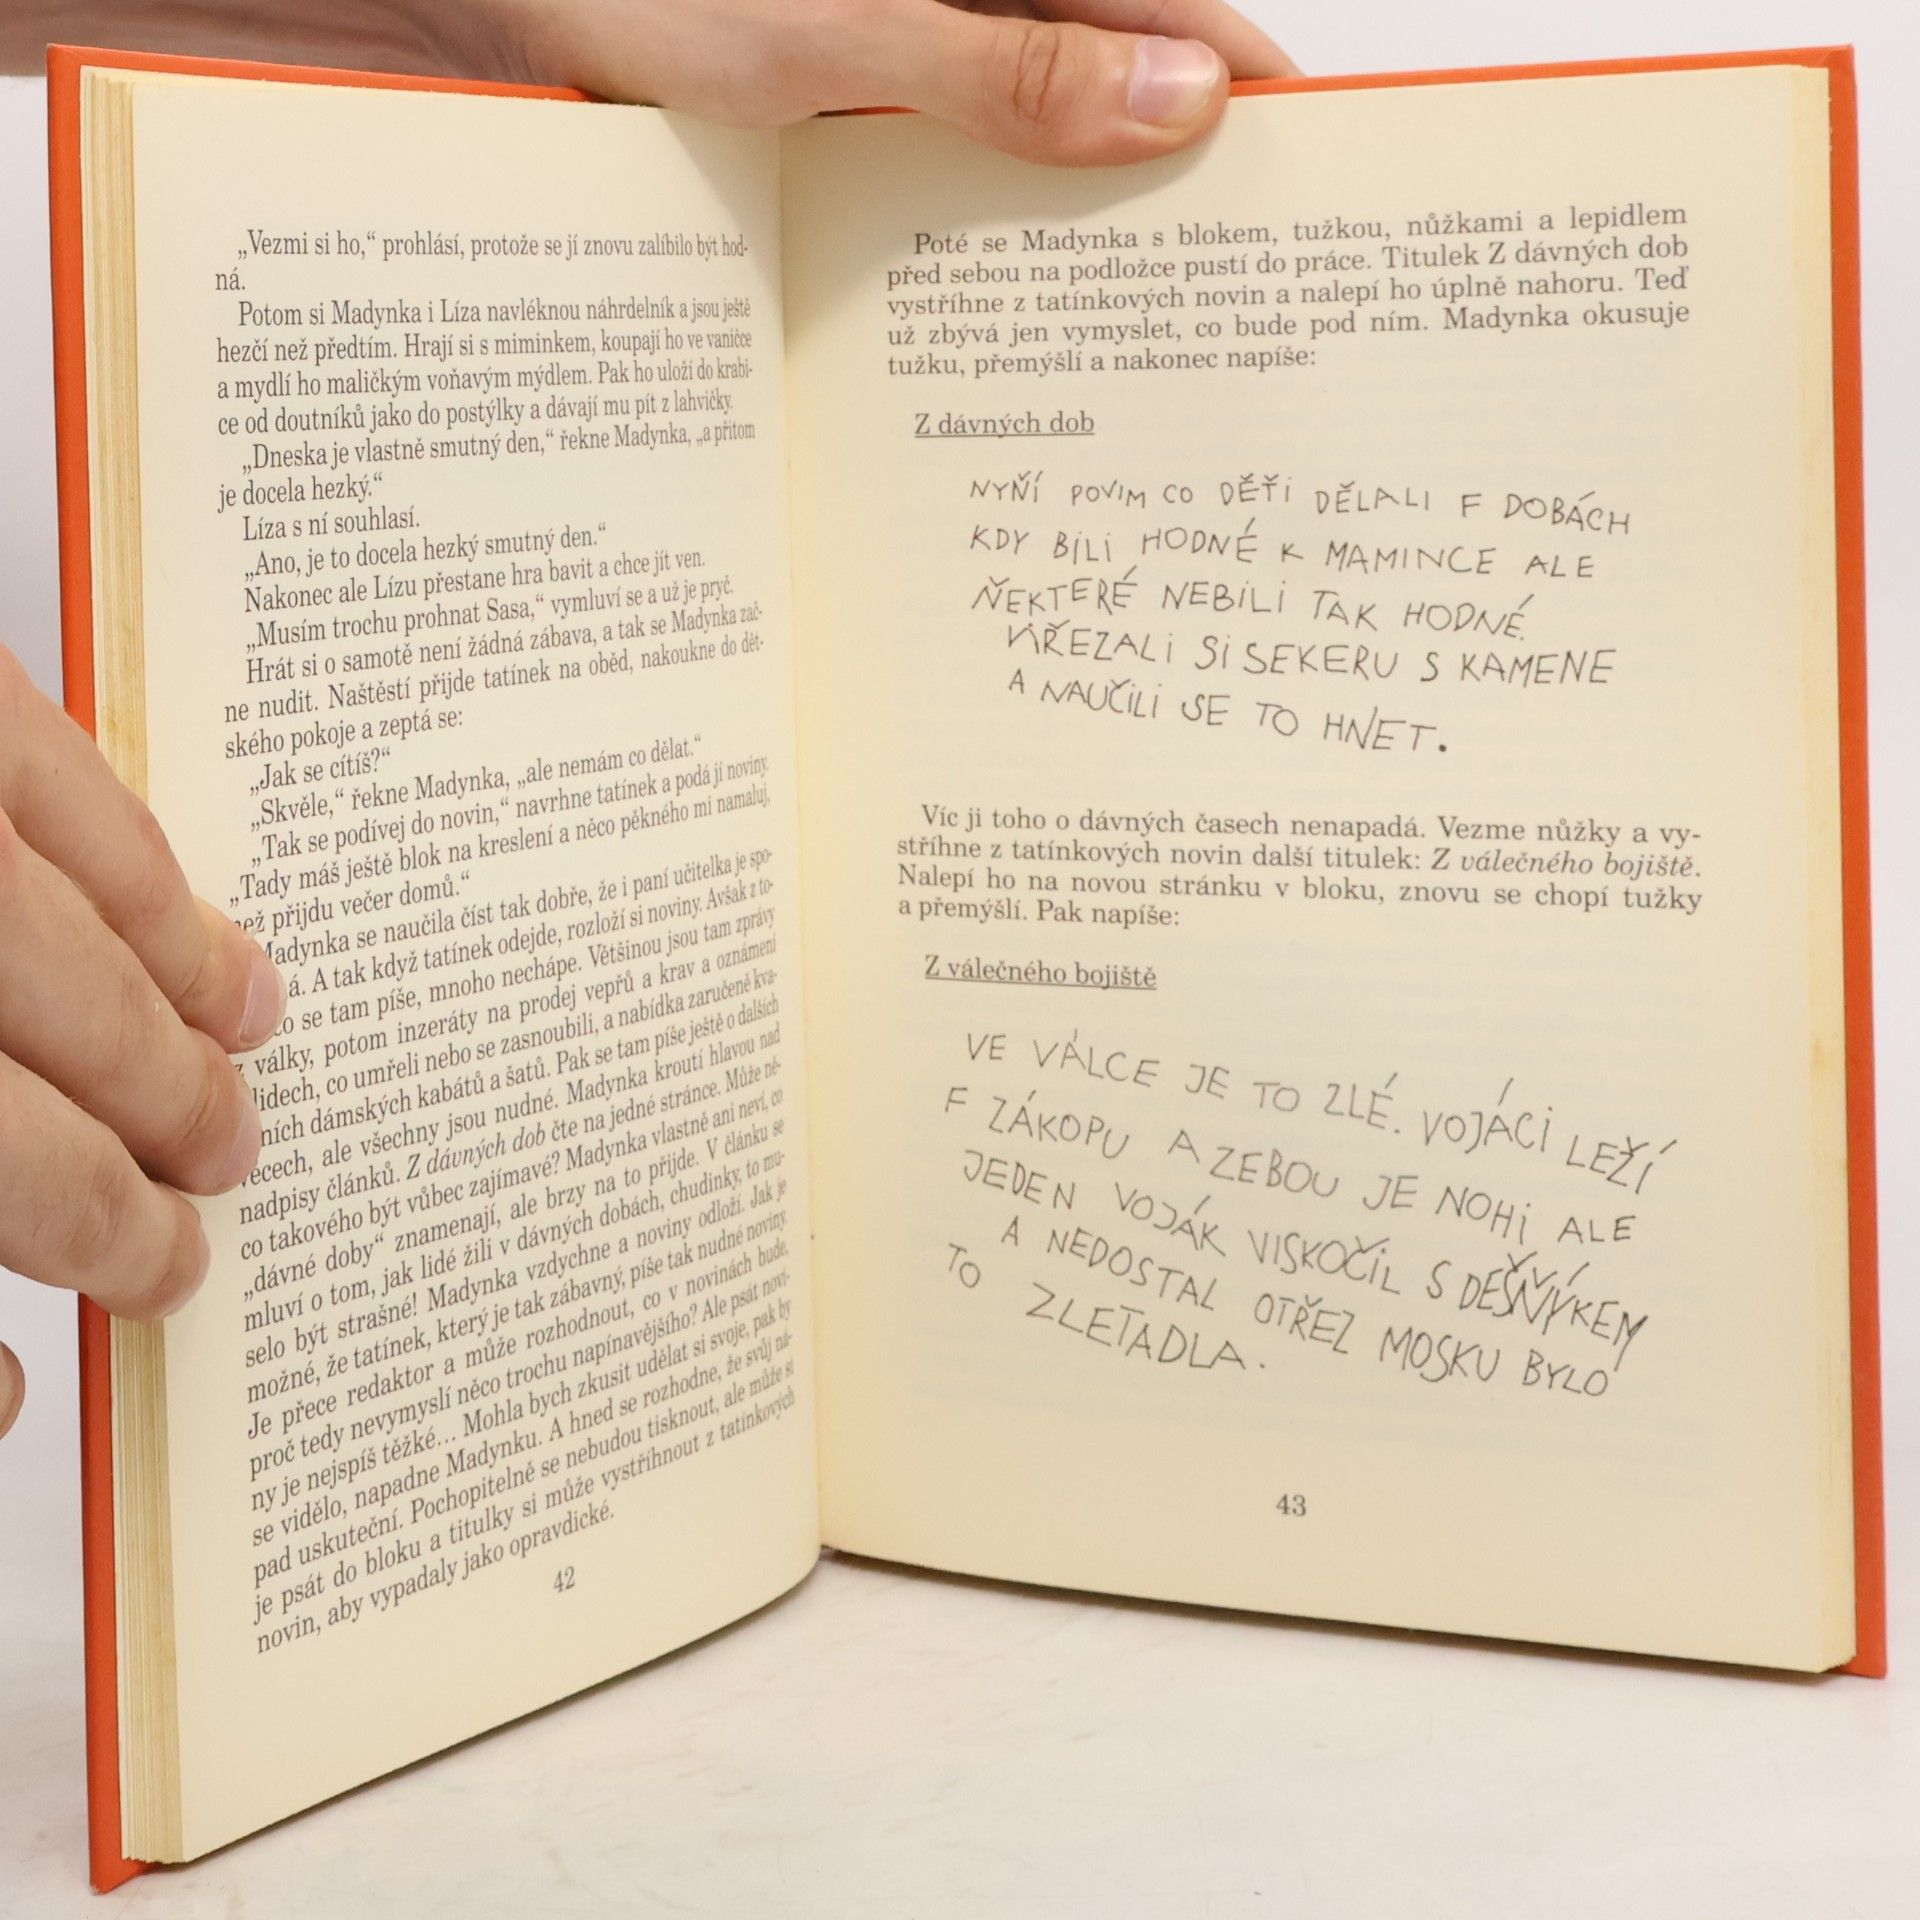 „Vezmi si ho,“ prohlásí, protože se jí znovu zalíbilo být hod-
ná.
Potom si Madynka i Líza navléknou náhrdelník a jsou ještě
hezčí než předtím. Hrají si s miminkem, koupají ho ve vaničce
a mydlí ho maličkým voňavým mýdlem. Pak ho uloží do krabi-
ce od doutníků jako do postýlky a dávají mu pít z lahvičky.
„Dneska je vlastně smutný den,“ řekne Madynka, „a přitom
je docela hezký.“
Líza s ní souhlasí.
„Ano, je to docela hezký smutný den.“
Nakonec ale Lízu přestane hra bavit a chce jít ven.
„Musím trochu prohnat Sasa,“ vymluví se a už je pryč.
Hrát si o samotě není žádná zábava, a tak se Madynka zač-
ne nudit. Naštěstí přijde tatínek na oběd, nakoukne do dět-
ského pokoje a zeptá se:
„Jak se cítíš?“
„Skvěle,“ řekne Madynka, „ale nemám co dělat.“
„Tak se podívej do novin,“ navrhne tatínek a podá jí noviny.
„Tady máš ještě blok na kreslení a něco pěkného mi namaluj,
než přijdu večer domů.“
Madynka se naučila číst tak dobře, že i paní učitelka je spo-
á. A tak když tatínek odejde, rozloží si noviny. Avšak z to-
co se tam píše, mnoho nechápe. Většinou jsou tam zprávy
z války, potom inzeráty na prodej vepřů a krav a oznámení
lidech, co umřeli nebo se zasnoubili, a nabídka zaručeně kva-
ních dámských kabátů a šatů. Pak se tam píše ještě o dalších
věcech, ale všechny jsou nudné. Madynka kroutí hlavou nad
nadpisy článků. Z dávných dob čte na jedné stránce. Může ně-
co takového být vůbec zajímavé? Madynka vlastně ani neví, co
„dávné doby“ znamenají, ale brzy na to přijde. V článku se
mluví o tom, jak lidé žili v dávných dobách, chudinky, to mu-
selo být strašné! Madynka vzdychne a noviny odloží. Jak je
možné, že tatínek, který je tak zábavný, píše tak nudné noviny.
Je přece redaktor a může rozhodnout, co v novinách bude,
proč tedy nevymyslí něco trochu napínavějšího? Ale psát novi-
ny je nejspíš těžké... Mohla bych zkusit udělat si svoje, pak by
se vidělo, napadne Madynku. A hned se rozhodne, že svůj ná-
pad uskuteční. Pochopitelně se nebudou tisknout, ale může si
je psát do bloku a titulky si může vystříhnout z tatínkových
novin, aby vypadaly jako opravdické.
42
Poté se Madynka s blokem, tužkou, nůžkami a lepidlem
před sebou na podložce pustí do práce. Titulek Z dávných dob
vystříhne z tatínkových novin a nalepí ho úplně nahoru. Teď
už zbývá jen vymyslet, co bude pod ním. Madynka okusuje
tužku, přemýšlí a nakonec napíše:
Z dávných dob
NYŇÍ POVIM CO DĚŤI DĚLALI F DOBÁCH
KDY BILI HODNÉ K MAMINCE ALE
ŇEKTERÉ NEBILI TAK HODNÉ.
VIŘEZALI SI SEKERU S KAMENE
A NAUČILI SE TO HNET.
Víc ji toho o dávných časech nenapadá. Vezme nůžky a vy-
stříhne z tatínkových novin další titulek: Z válečného bojiště.
Nalepí ho na novou stránku v bloku, znovu se chopí tužky
a přemýšlí. Pak napíše:
Z válečného bojiště
VE VÁLCE JE TO ZLÉ. VOJÁCI LEŽÍ
F ZÁKOPU A ZEBOU JE NOHI ALE
JEDEN VOJÁK VISKOČIL S DEŠŇÝKEM
A NEDOSTAL OTŘEZ MOSKU BYLO
TO ZLETADLA.
43